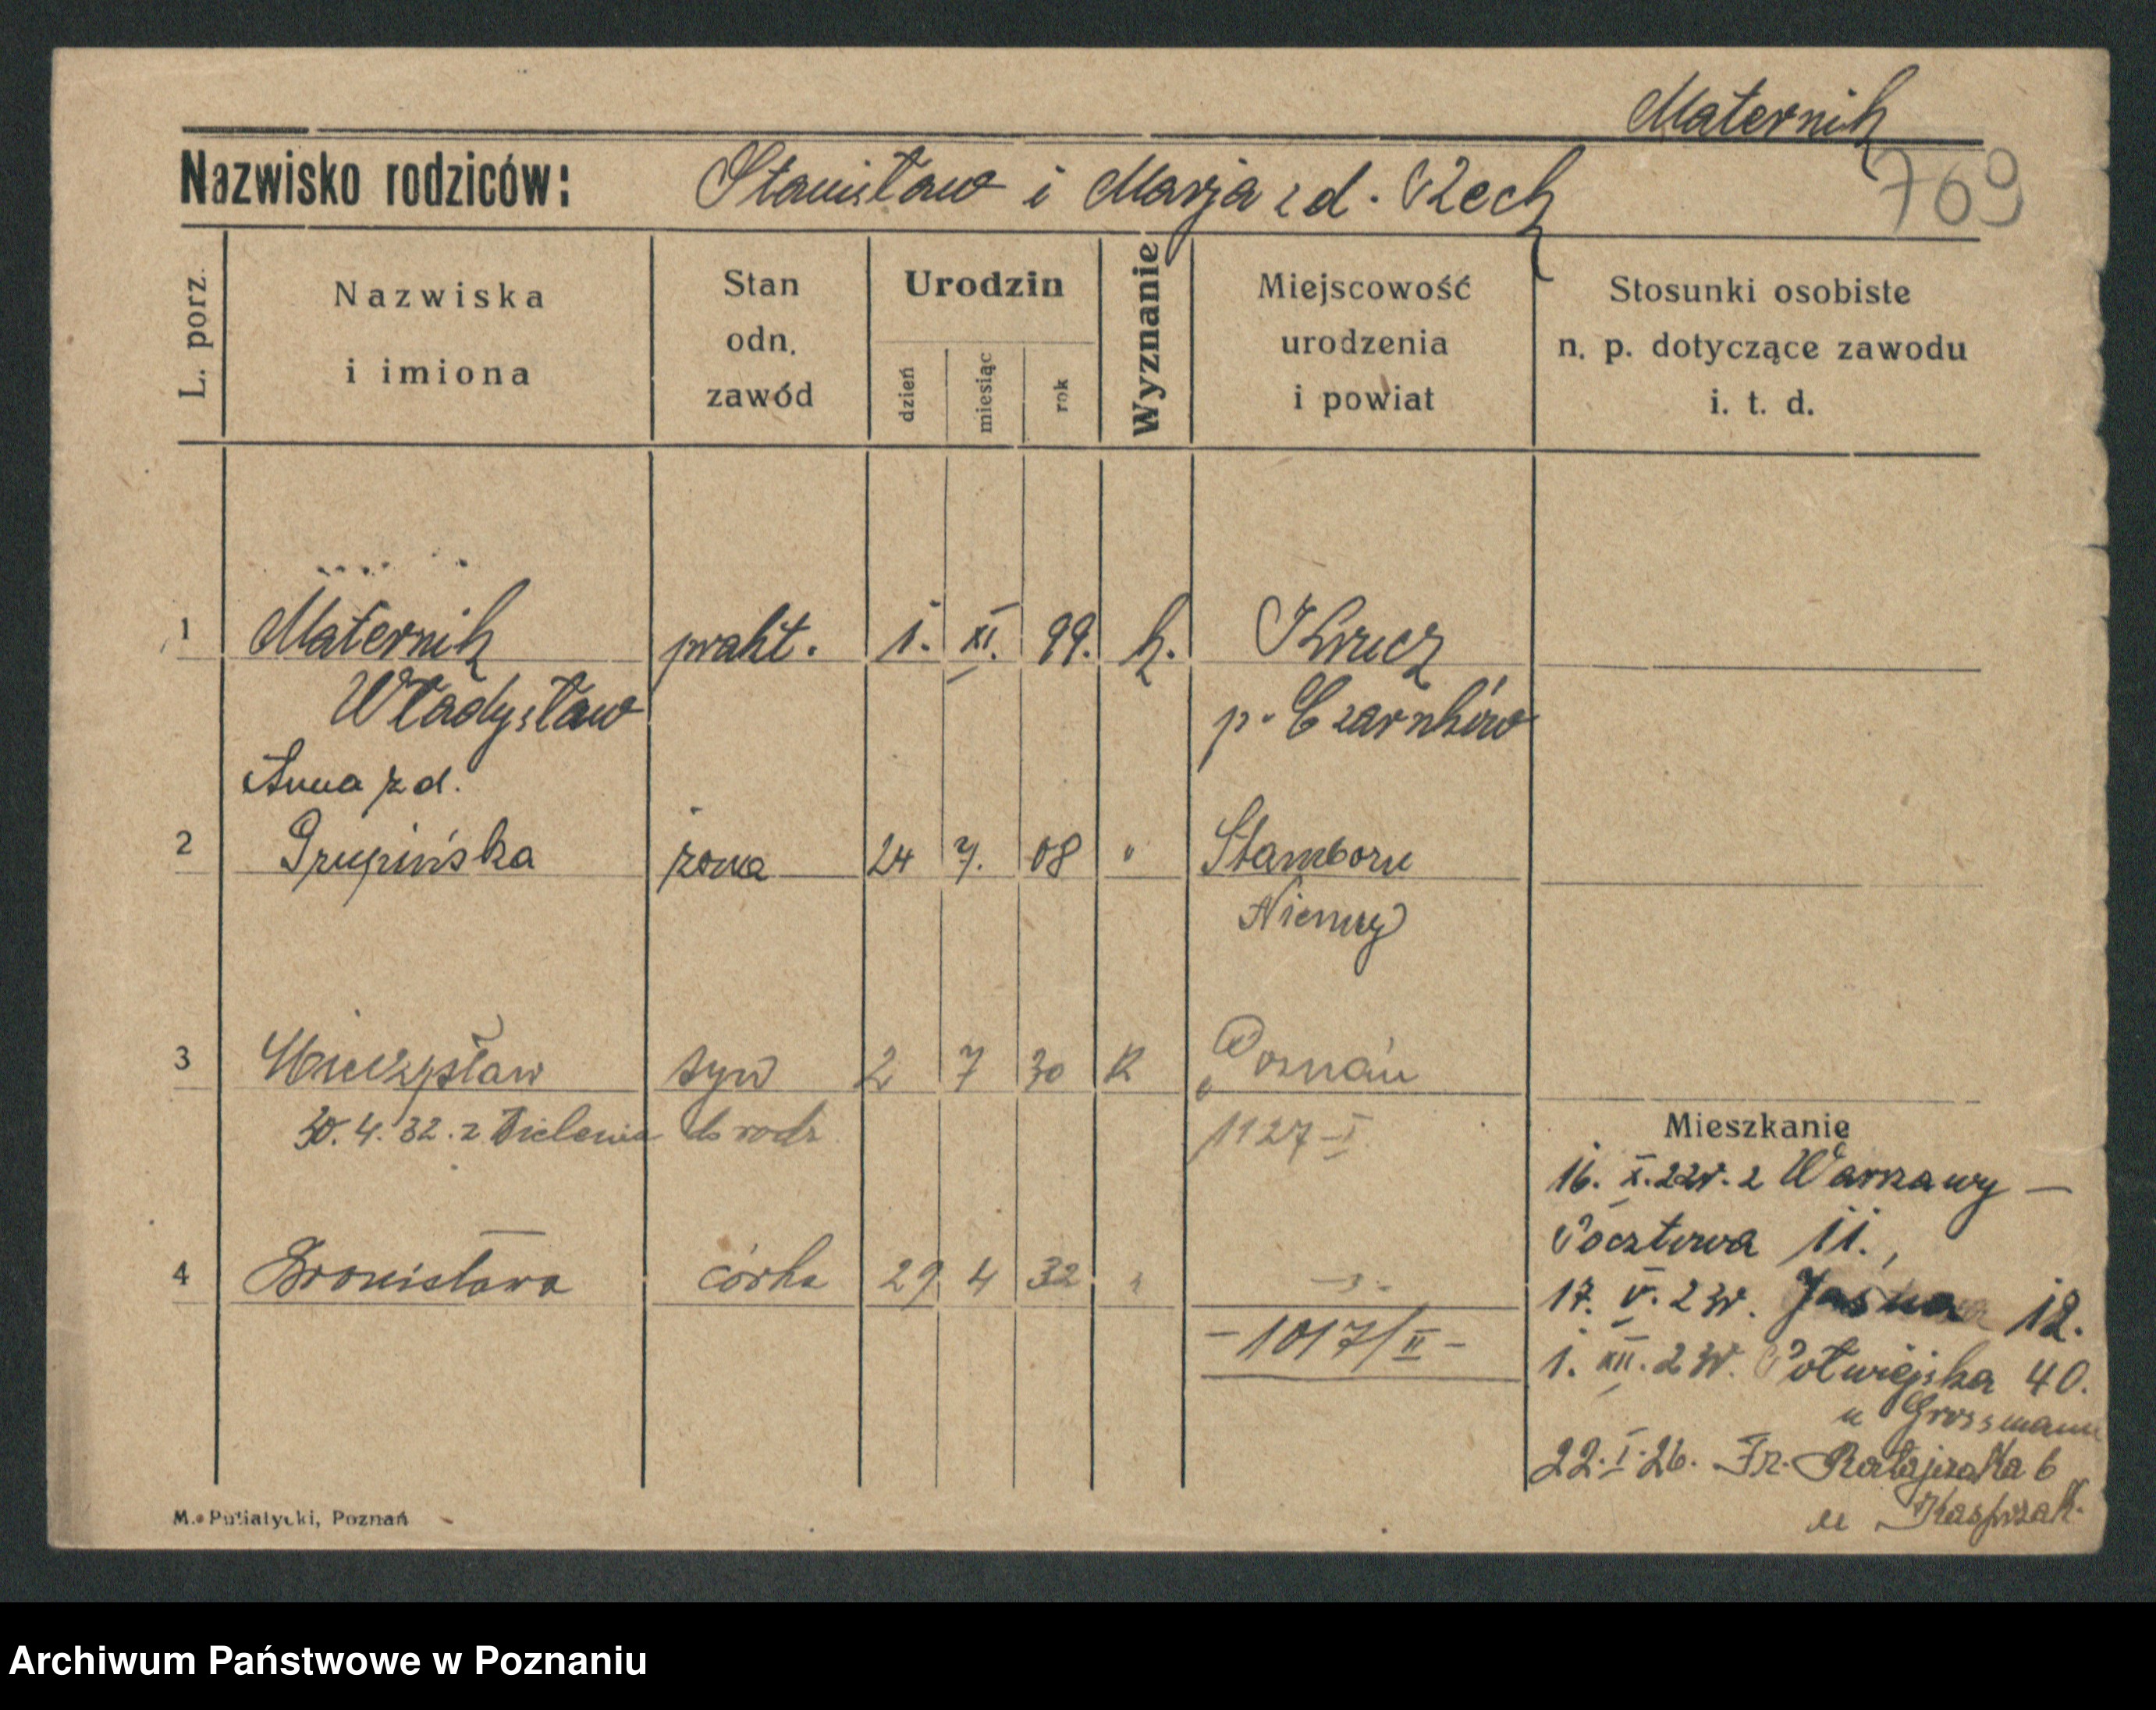 Maternik
Nazwisko rodziców: Stanisław i Marja z d. Rzech
769
L. porz.
Nazwiska
i imiona
Stan
odn.
zawód
Urodzin
dzień
miesiąc
rok
Wyznanie
Miejscowość
urodzenia
i powiat
Stosunki osobiste
n. p. dotyczące zawodu
i. t. d.
1 Maternik prakt. 1. XI. 99. k. Krucz
Władysław p. Czarnków
Anna z d.
2 Grupińska żona 24 7. 08 "
Niemcy
3 Mieczysław syn 2 7 30 R Poznań
30. 4. 32. z do rodz 1127-I
Mieszkanie
16. X. 22r. z Warszawy —
Pocztowa 11.,
4 Bronisława córka 29 4 32 " -„-
17. V. 23r. Jasna 12.
-1017/II-
1. XII. 23r. Półwiejska 40.
u Grossmann
22. I. 26. Fr. Ratajczaka 6
u Kasprzak.
M. Putiatycki, Poznań
Archiwum Państwowe w Poznaniu